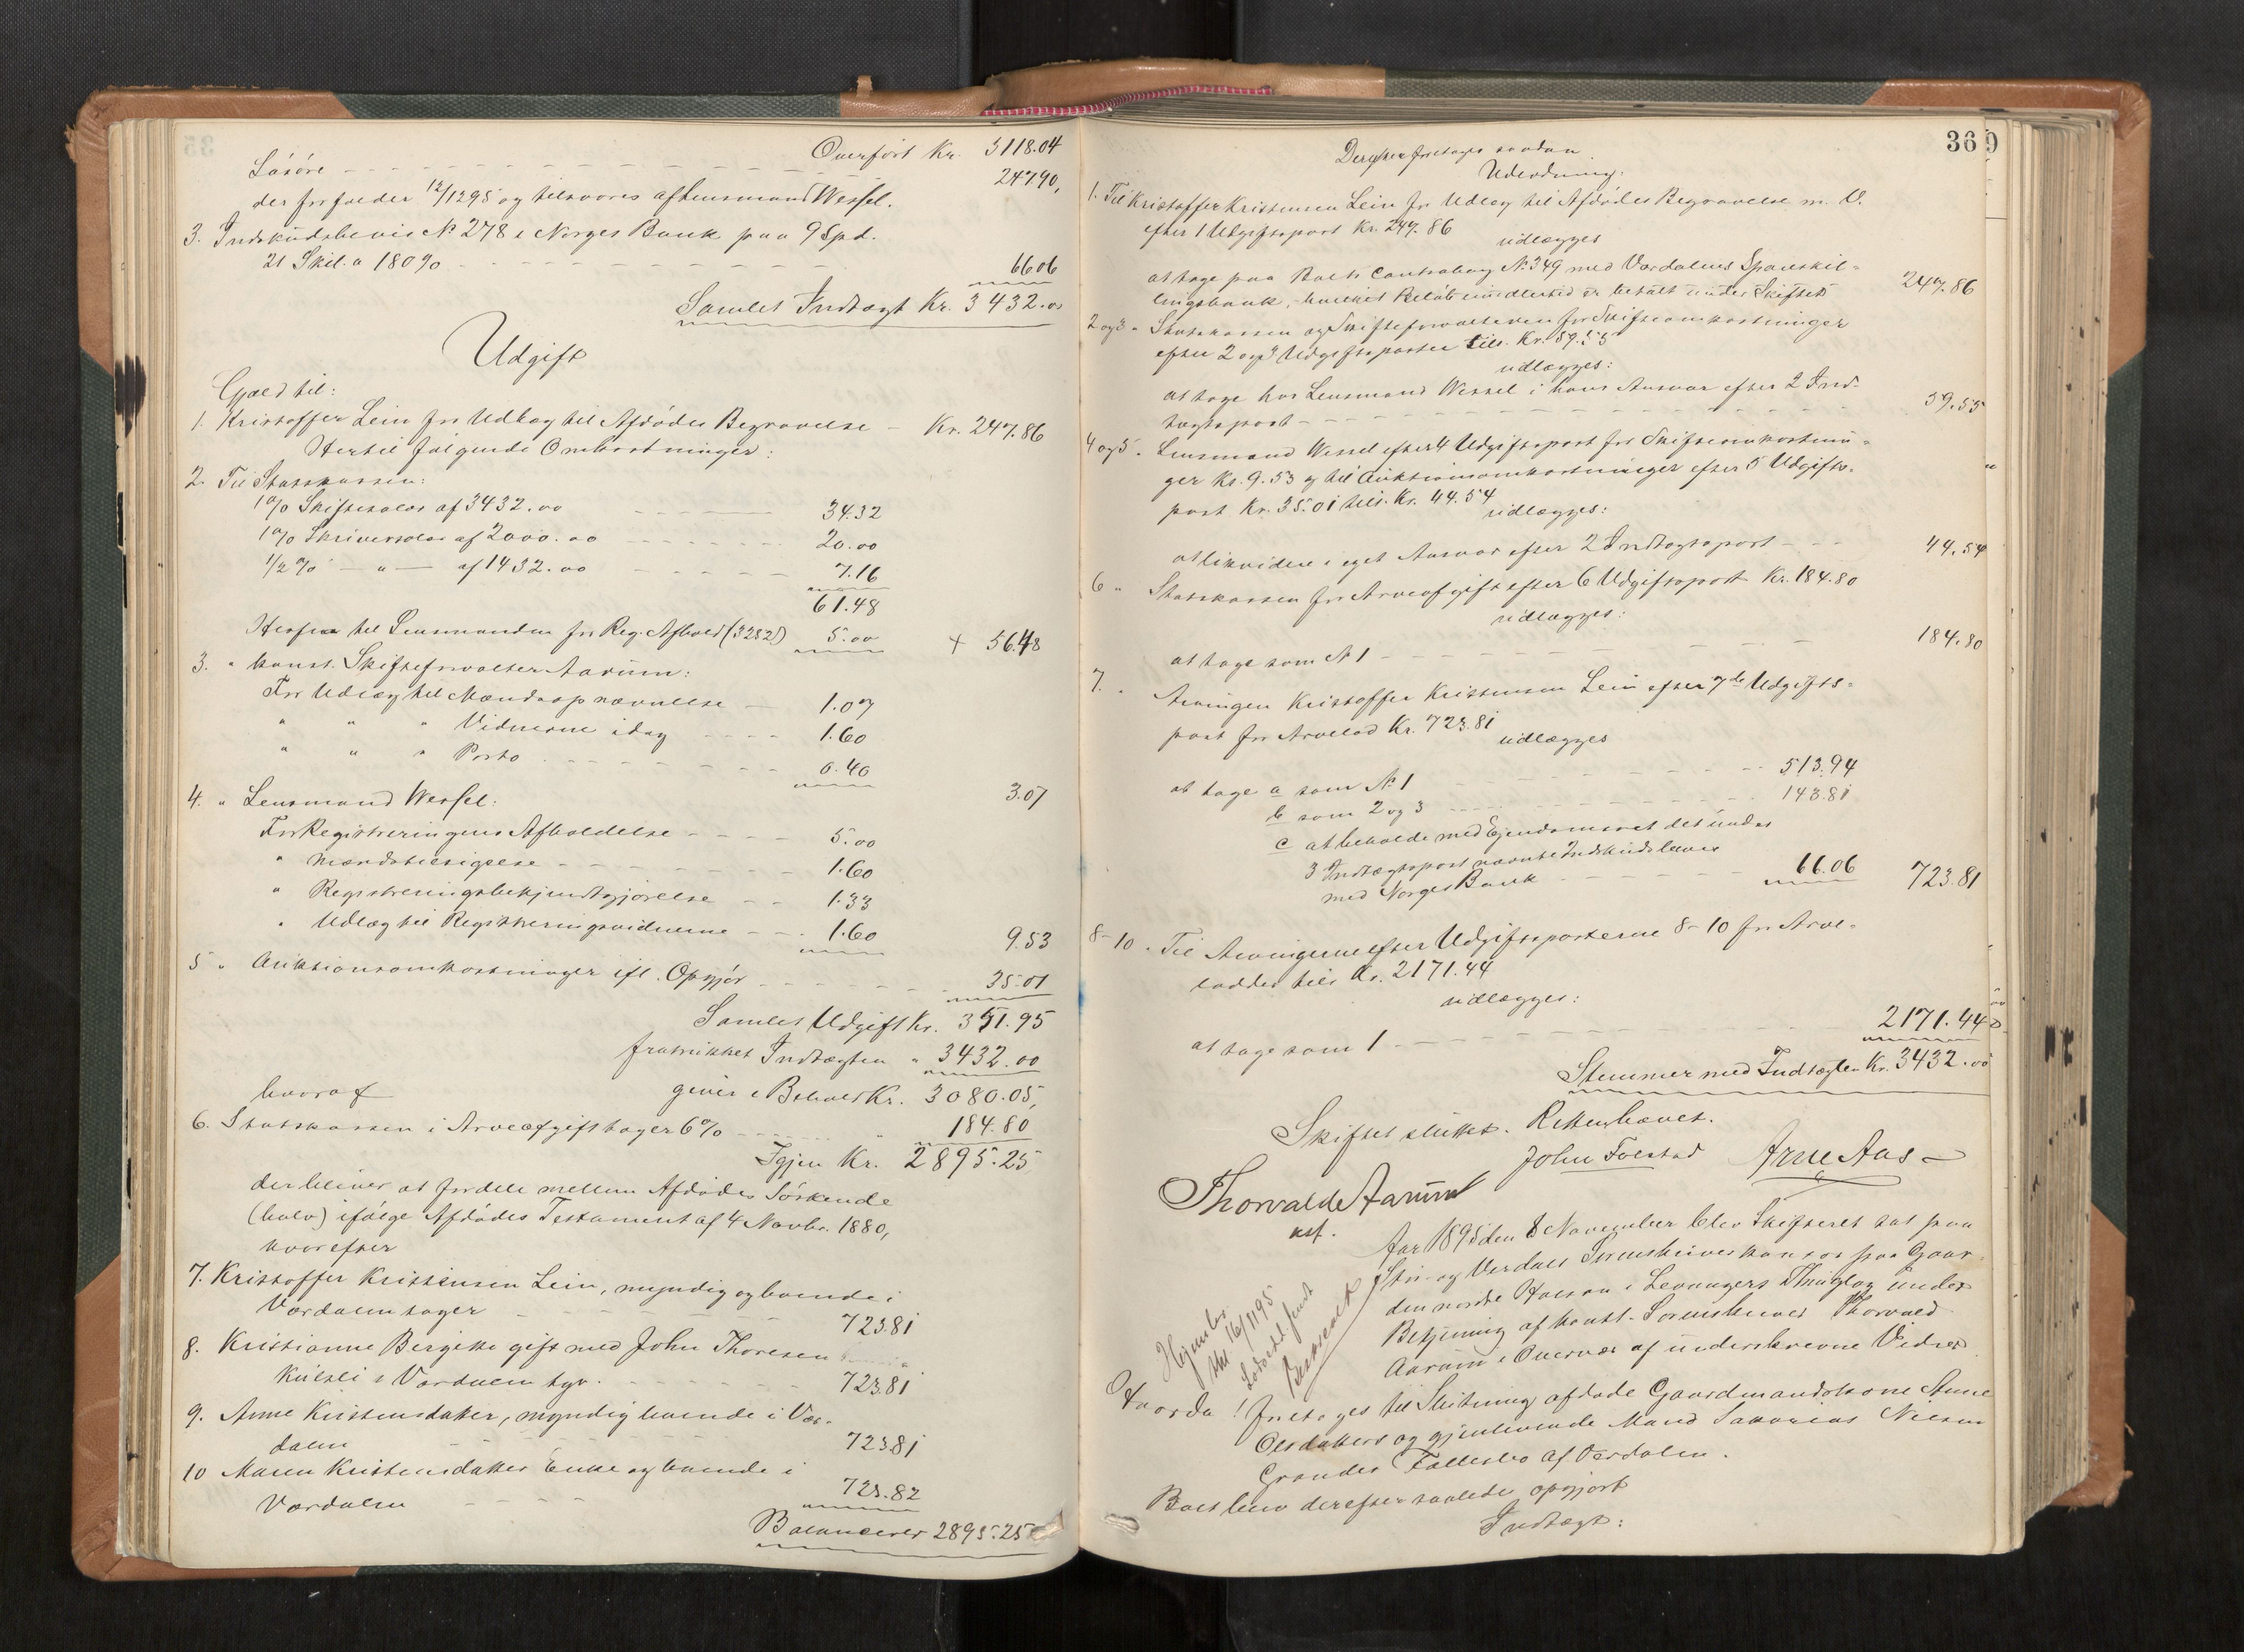 Overført Kr. 3118.04
Løsøre 247.90,
der forfalder 12/12 95 og tilsvares af Lensmand Wessel.
3. Indskudsbevis No 278 i Norges Bank paa 9 Spd.
21 Skil. a 180% 66.06
Samlet Indtægt Kr. 3432.00
Udgift
Gjæld til:
1. Kristoffer Lein for Udlæg til Afdødes Begravelse Kr. 247.86
Hertil følgende Omkostninger:
2. Til Statskassen:
1% Skiftesalær af 3432.00 34.32
1% Skriversalær af 2000.00 20.00
1/2% — " — af 1432.00 7.16
61.48
Herfra til Lensmanden for Reg. Afhold (3282) 5.00 + 56.48
3. " konst. Skifteforvalter Aarum:
For Udlæg til Mændsopnævnelse 1.07
" " " Vidnerne idag 1.60
" " " Porto 0.40
3.07
4. " Lensmand Wessel:
For Registreringens Afholdelse 5.00
" Mændstilsigelse 1.60
" Registreringsbekjendtgjørelse 1.33
" Udlæg til Registreringsvidnerne 1.60 9.53
5 " Auktionsomkostninger ifl. Opgjør 35.01
Samlet Udgift Kr. 351.95
fratrukket Indtægten " 3432.00
giver i Behold Kr. 3080.05,
hvoraf
6. Statskassen i Arveafgift tager 6% " 184.80
Igjen Kr. 2895.25
der bliver at fordele mellem Afdødes Søskende
(halv) ifølge Afdødes Testament af 4 Novbr. 1880,
hvorefter
7. Kristoffer Kristensen Lein, myndig og boende i
Værdalen tager 723.81
8. Kristianne Bergitte gift med John Thoresen
Kulsli i Værdalen tgr. 723.81
9. Anne Kristensdatter, myndig boende i Vær-
dalen 723.81
10 Maren Kristensdatter Enke og boende i
Værdalen 723.82
Balancerer 2895.25
36
Derefter foretages saadan
Udlodning:
1. Til Kristoffer Kristensen Lein for Udlæg til Afdødes Begravelse m. V.
efter 1 Udgiftspost Kr. 247.86
udlægges
at tage paa Boets Contrabog No 349 med Værdalens Sparekil-
lingsbank, hvilket Beløb imidlertid er betalt under Skiftet 247.86
2 og 3 " Statskassen og Skifteforvalteren for Skifteomkostninger
efter 2 og 3 Udgiftsposter tils. Kr. 59.55
udlægges:
at tage hos Lensmand Wessel i hans Ansvar efter 2 Ind-
tægtspost 59.55
4 og 5 " Lensmand Wessel efter 4 Udgiftspost for Skifteomkostnin-
ger Kr. 9.53 og til Auktionsomkostninger efter 5 Udgifts-
post Kr. 35.01 tils. Kr. 44.54
udlægges:
at likvidere i eget Ansvar efter 2 Indtægtspost 44.54
6 " Statskassen for Arveafgift efter 6 Udgiftspost Kr. 184.80
udlægges:
at tage som No 1 184.80
7. " Arvingen Kristoffer Kristensen Lein efter 7de Udgifts-
post for Arvelod Kr. 723.81
udlægges
at tage a som No 1 513.94
b som 2 og 3 143.81
c at beholde med Ejendomsret det under
3 Indtægtspost nævnte Indskudsbevis
med Norges Bank 66.06 723.81
8-10 " Til Arvingerne efter Udgiftsposterne 8-10 for Arve-
lodder tils Kr. 2171.44
udlægges:
at tage som 1 2171.44
Stemmer med Indtægten Kr. 3432.00
Skiftet sluttet. Retten hævet.
Thorvald Aarum John Folstad Arne Aas
kst.
Aar 1895 den 8 November blev Skifteret sat paa
Stør- og Verdals Sorenskriverkontor paa Gaar-
den nordre Halsan i Levangers Thinglag under
Betjening af konst. Sorenskriver Thorvald
Aarum i Overvær af underskrevne Vidner
Hvorda! foretoges til Slutning afdøde Gaardmandskone Anne
Olsdatters og gjenlevende Mand Sakarias Nilsen
Grandes Fællesbo af Verdalen.
Boet blev derefter saaledes opgjort
Indtægt: